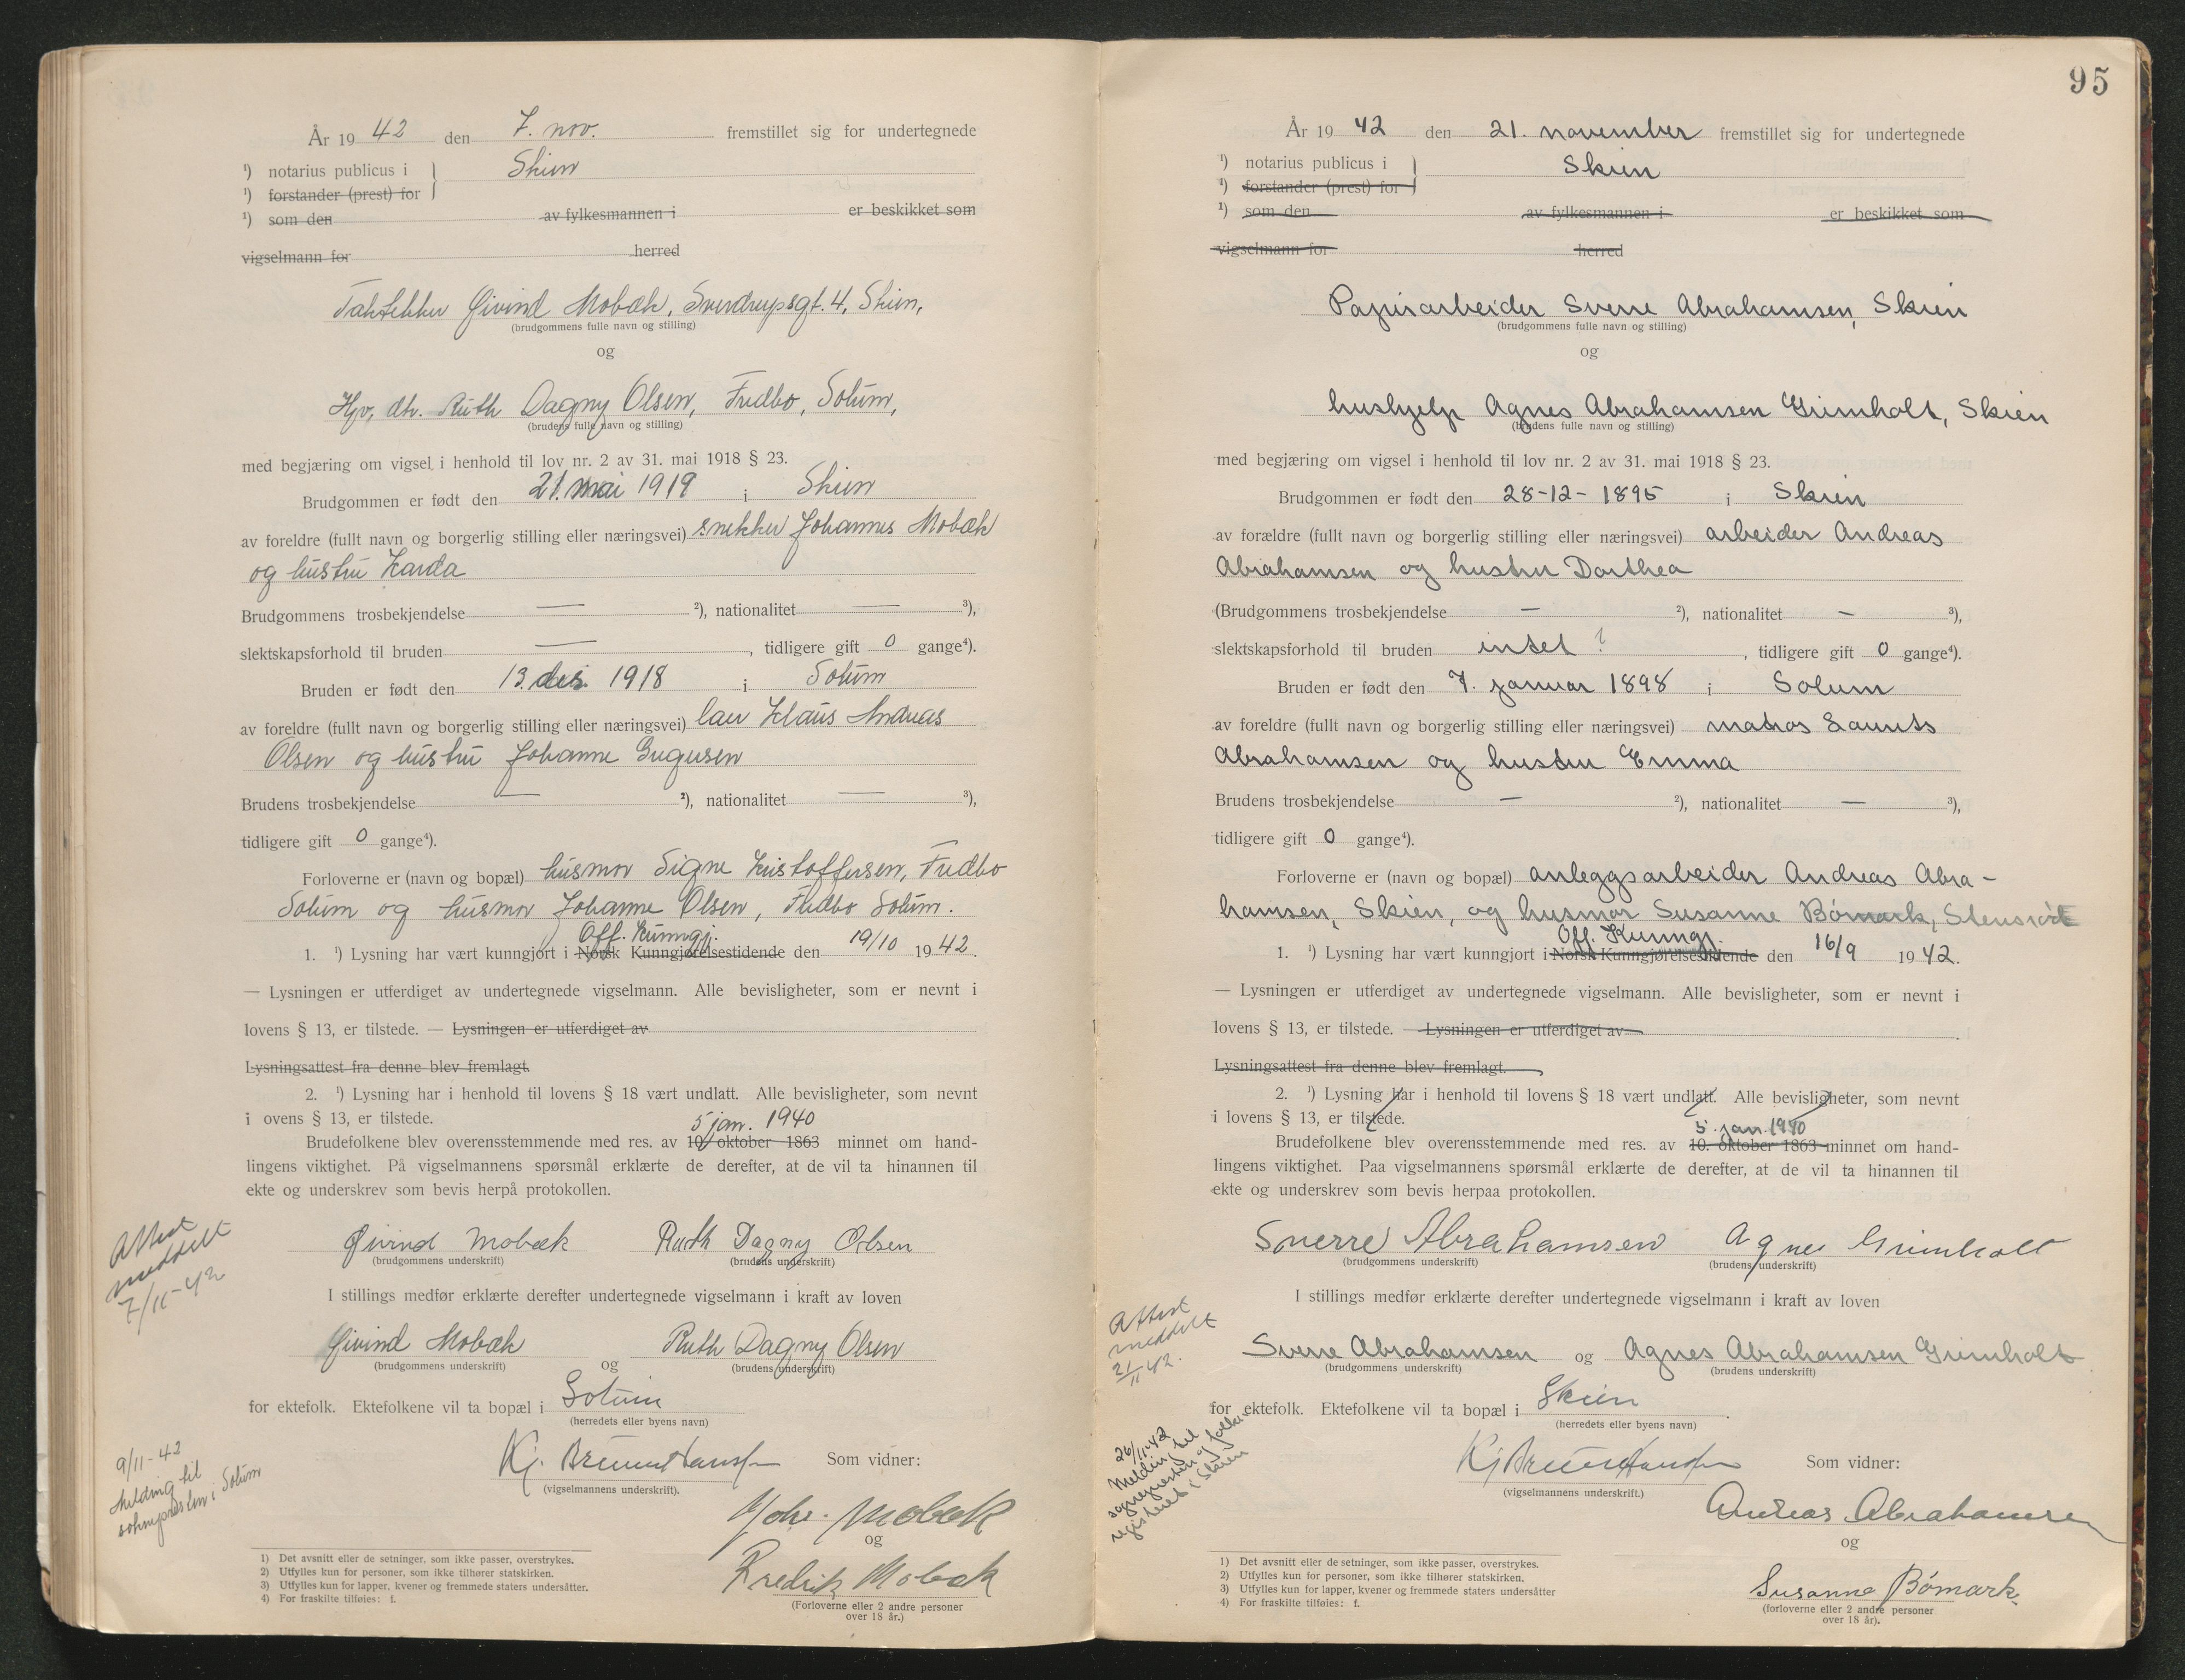 År 19 42 den 7. nov. fremstillet sig for undertegnede
¹) notarius publicus i Skien
¹) forstander (prest) for
¹) som den av fylkesmannen i er beskikket som
vigselmann for herred
Taktekker Øivind Mobæk, Sverdrupsgt. 4, Skien,
(brudgommens fulle navn og stilling)
og
Hjv. dtr. Ruth Dagny Olsen, Fredbo, Solum,
(brudens fulle navn og stilling)
med begjæring om vigsel i henhold til lov nr. 2 av 31. mai 1918 § 23.
Brudgommen er født den 21. mai 1919 i Skien
av foreldre (fullt navn og borgerlig stilling eller næringsvei) snekker Johannes Mobæk
og hustru Karda
Brudgommens trosbekjendelse — ²), nationalitet — ³),
slektskapsforhold til bruden — , tidligere gift 0 gange⁴).
Bruden er født den 13. des. 1918 i Solum
av foreldre (fullt navn og borgerlig stilling eller næringsvei) Klaus Andreas
Olsen og hustru Johanne Gregersen
Brudens trosbekjendelse — ²), nationalitet — ³),
tidligere gift 0 gange⁴).
Forloverne er (navn og bopæl) husmor Signe Kristoffersen, Fredbo
Solum og husmor Johanne Olsen, Fredbo Solum.
Off. Kunngj.
1. ¹) Lysning har vært kunngjort i Norsk Kunngjørelsestidende den 19/10 1942.
— Lysningen er utferdiget av undertegnede vigselmann. Alle bevisligheter, som er nevnt i
lovens § 13, er tilstede. — Lysningen er utferdiget av
Lysningsattest fra denne blev fremlagt.
2. ¹) Lysning har i henhold til lovens § 18 vært undlatt. Alle bevisligheter, som nevnt
i ovens § 13, er tilstede.
5 jan. 1940
Brudefolkene blev overensstemmende med res. av 10 oktober 1863 minnet om hand-
lingens viktighet. På vigselmannens spørsmål erklærte de derefter, at de vil ta hinannen til
ekte og underskrev som bevis herpå protokollen.
Attest
meddelt
7/11-42
Øivind Mobæk Ruth Dagny Olsen
(brudgommens underskrift) (brudens underskrift)
I stillings medfør erklærte derefter undertegnede vigselmann i kraft av loven
Øivind Mobæk og Ruth Dagny Olsen
(brudgommens underskrift) (brudens underskrift)
for ektefolk. Ektefolkene vil ta bopæl i Solum
(herredets eller byens navn)
9/11-42
Melding til
soknepresten i Solum
Kj. Bruun Hansen Som vidner:
(vigselmannens underskrift).
Johs. Mobæk
og
Fredrik Mobæk
(Forloverne eller 2 andre personer
over 18 år.)
1) Det avsnitt eller de setninger, som ikke passer, overstrykes.
2) Utfylles kun for personer, som ikke tilhører statskirken.
3) Utfylles kun for lapper, kvener og fremmede staters undersåtter.
4) For fraskilte tilføies: f.
95
År 19 42 den 21. november fremstillet sig for undertegnede
¹) notarius publicus i Skien
¹) forstander (prest) for
¹) som den av fylkesmannen i er beskikket som
vigselmann for herred
Papirarbeider Sverre Abrahamsen, Skien
(brudgommens fulle navn og stilling)
og
hushjelp Agnes Abrahamsen Grimholt, Skien
(brudens fulle navn og stilling)
med begjæring om vigsel i henhold til lov nr. 2 av 31. mai 1918 § 23.
Brudgommen er født den 28-12-1895 i Skien
av forældre (fullt navn og borgerlig stilling eller næringsvei) arbeider Andreas
Abrahamsen og hustru Dorthea
(Brudgommens trosbekjendelse — ²), nationalitet — ³),
slektskapsforhold til bruden intet ? , tidligere gift 0 gange⁴).
Bruden er født den 7. januar 1898 i Solum
av foreldre (fullt navn og borgerlig stilling eller næringsvei) matros Laurits
Abrahamsen og hustru Emma
Brudens trosbekjendelse — ²), nationalitet — ³),
tidligere gift 0 gange⁴).
Forloverne er (navn og bopæl) anleggsarbeider Andreas Abra-
hamsen, Skien, og husmor Susanne Bømark,
Off. Kunngj.
1. ¹) Lysning har vært kunngjort i Norsk Kunngjørelsestidende den 16/9 1942.
— Lysningen er utferdiget av undertegnede vigselmann. Alle bevisligheter, som er nevnt i
lovens § 13, er tilstede. — Lysningen er utferdiget av
Lysningsattest fra denne blev fremlagt.
2. ¹) Lysning har i henhold til lovens § 18 vært undlatt. Alle bevisligheter, som nevnt
i lovens § 13, er tilstede.
5. jan. 1940
Brudefolkene blev overensstemmende med res. av 10. oktober 1863 minnet om hand-
lingens viktighet. Paa vigselmannens spørsmål erklærte de derefter, at de vil ta hinannen til
ekte og underskrev som bevis herpaa protokollen.
Sverre Abrahamsen Agnes Grimholt
(brudgommens underskrift) (brudens underskrift)
I stillings medfør erklærte derefter undertegnede vigselmann i kraft av loven
Attest
meddelt
21/11 42.
Sverre Abrahamsen og Agnes Abrahamsen Grimholt
(brudgommens underskrift) (brudens underskrift)
for ektefolk. Ektefolkene vil ta bopæl i Skien
(herredets eller byens navn)
26/11-42
Melding til
sognepresten og folke-
registeret i Skien
Kj Bruun Hansen Som vidner:
(vigselmannens underskrift.)
Andreas Abrahamsen
og
Susanne Bømark.
(forloverne eller 2 andre personer
over 18 år).
1) Det avsnitt eller de setninger, som ikke passer, overstrykes.
2) Utfylles kun for personer, som ikke tilhører statskirken.
3) Utfylles kun for lapper, kvener og fremmede staters undersåtter
4) For fraskilte tilføies: f.